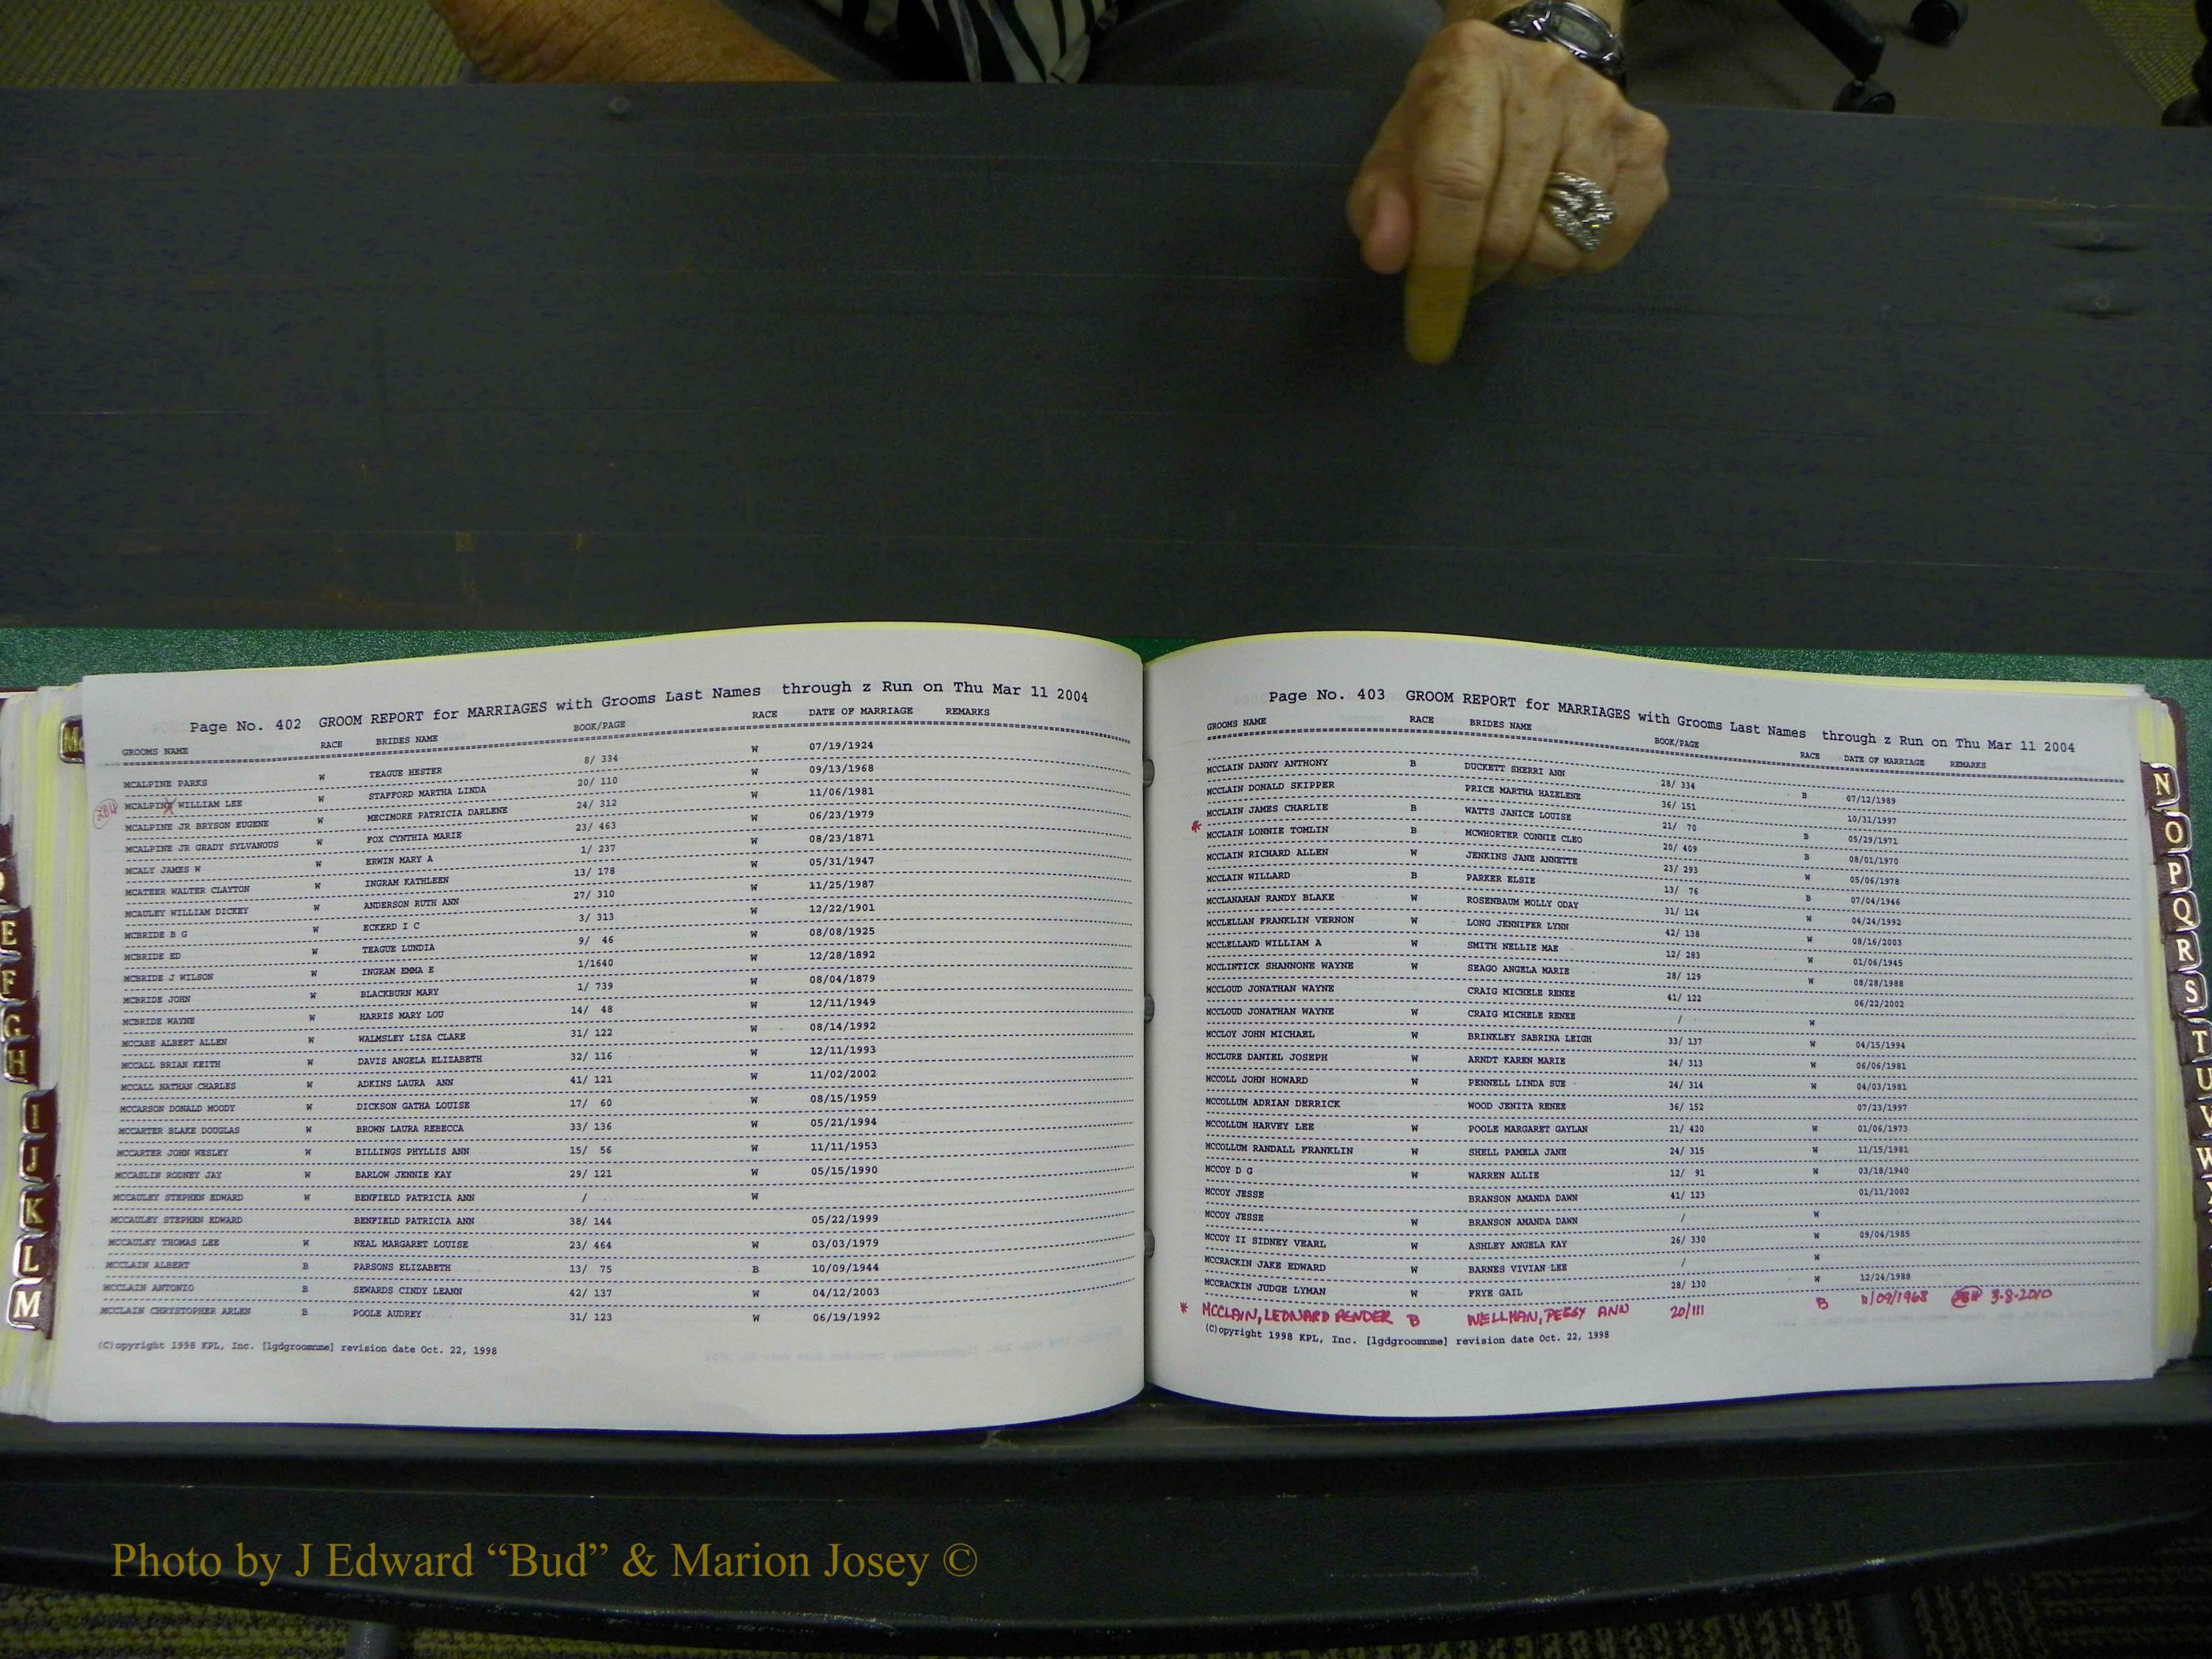 Page No. 402 GROOM REPORT for MARRIAGES with Grooms Last Names through z Run on Thu Mar 11 2004
GROOMS NAME RACE BRIDES NAME BOOK/PAGE RACE DATE OF MARRIAGE REMARKS
MCALPINE PARKS W TEAGUE HESTER 8/ 334 W 07/19/1924
MCALPINE WILLIAM LEE W STAFFORD MARTHA LINDA 20/ 110 W 09/13/1968
MCALPINE JR BRYSON EUGENE W MECIMORE PATRICIA DARLENE 24/ 312 W 11/06/1981
MCALPINE JR GRADY SYLVANOUS W FOX CYNTHIA MARIE 23/ 463 W 06/23/1979
MCALY JAMES W W ERWIN MARY A 1/ 237 W 08/23/1871
MCATEER WALTER CLAYTON W INGRAM KATHLEEN 13/ 178 W 05/31/1947
MCAULEY WILLIAM DICKEY W ANDERSON RUTH ANN 27/ 310 W 11/25/1987
MCBRIDE B G W ECKERD I C 3/ 313 W 12/22/1901
MCBRIDE ED W TEAGUE LUNDIA 9/ 46 W 08/08/1925
MCBRIDE J WILSON W INGRAM EMMA E 1/1640 W 12/28/1892
MCBRIDE JOHN W BLACKBURN MARY 1/ 739 W 08/04/1879
MCBRIDE WAYNE W HARRIS MARY LOU 14/ 48 W 12/11/1949
MCCABE ALBERT ALLEN W WALMSLEY LISA CLARE 31/ 122 W 08/14/1992
MCCALL BRIAN KEITH W DAVIS ANGELA ELIZABETH 32/ 116 W 12/11/1993
MCCALL NATHAN CHARLES W ADKINS LAURA ANN 41/ 121 W 11/02/2002
MCCARSON DONALD MOODY W DICKSON GATHA LOUISE 17/ 60 W 08/15/1959
MCCARTER BLAKE DOUGLAS W BROWN LAURA REBECCA 33/ 136 W 05/21/1994
MCCARTER JOHN WESLEY W BILLINGS PHYLLIS ANN 15/ 56 W 11/11/1953
MCCASLIN RODNEY JAY W BARLOW JENNIE KAY 29/ 121 W 05/15/1990
MCCAULEY STEPHEN EDWARD W BENFIELD PATRICIA ANN / W
MCCAULEY STEPHEN EDWARD BENFIELD PATRICIA ANN 38/ 144 05/22/1999
MCCAULEY THOMAS LEE W NEAL MARGARET LOUISE 23/ 464 W 03/03/1979
MCCLAIN ALBERT B PARSONS ELIZABETH 13/ 75 B 10/09/1944
MCCLAIN ANTONIO B SEWARDS CINDY LEANN 42/ 137 W 04/12/2003
MCCLAIN CHRYSTOPHER ARLEN B POOLE AUDREY 31/ 123 W 06/19/1992
(C)opyright 1998 KPL, Inc. [lgdgroomnme] revision date Oct. 22, 1998
Page No. 403 GROOM REPORT for MARRIAGES with Grooms Last Names through z Run on Thu Mar 11 2004
GROOMS NAME RACE BRIDES NAME BOOK/PAGE RACE DATE OF MARRIAGE REMARKS
MCCLAIN DANNY ANTHONY B DUCKETT SHERRI ANN 28/ 334 B 07/12/1989
MCCLAIN DONALD SKIPPER PRICE MARTHA HAZELENE 36/ 151 10/31/1997
MCCLAIN JAMES CHARLIE B WATTS JANICE LOUISE 21/ 70 B 05/29/1971
* MCCLAIN LONNIE TOMLIN B MCWHORTER CONNIE CLEO 20/ 409 B 08/01/1970
MCCLAIN RICHARD ALLEN W JENKINS JANE ANNETTE 23/ 293 W 05/06/1978
MCCLAIN WILLARD B PARKER ELSIE 13/ 76 B 07/04/1946
MCCLANAHAN RANDY BLAKE W ROSENBAUM MOLLY ODAY 31/ 124 W 04/24/1992
MCCLELLAN FRANKLIN VERNON W LONG JENNIFER LYNN 42/ 138 W 08/16/2003
MCCLELLAND WILLIAM A W SMITH NELLIE MAE 12/ 283 W 01/06/1945
MCCLINTICK SHANNONE WAYNE W SEAGO ANGELA MARIE 28/ 129 W 08/28/1988
MCCLOUD JONATHAN WAYNE CRAIG MICHELE RENEE 41/ 122 06/22/2002
MCCLOUD JONATHAN WAYNE W CRAIG MICHELE RENEE / W
MCCLOY JOHN MICHAEL W BRINKLEY SABRINA LEIGH 33/ 137 W 04/15/1994
MCCLURE DANIEL JOSEPH W ARNDT KAREN MARIE 24/ 313 W 06/06/1981
MCCOLL JOHN HOWARD W PENNELL LINDA SUE 24/ 314 W 04/03/1981
MCCOLLUM ADRIAN DERRICK WOOD JENITA RENEE 36/ 152 07/23/1997
MCCOLLUM HARVEY LEE W POOLE MARGARET GAYLAN 21/ 420 W 01/06/1973
MCCOLLUM RANDALL FRANKLIN W SHELL PAMELA JANE 24/ 315 W 11/15/1981
MCCOY D G W WARREN ALLIE 12/ 91 W 03/18/1940
MCCOY JESSE BRANSON AMANDA DAWN 41/ 123 01/11/2002
MCCOY JESSE W BRANSON AMANDA DAWN / W
MCCOY II SIDNEY VEARL W ASHLEY ANGELA KAY 26/ 330 W 09/04/1985
MCCRACKIN JAKE EDWARD W BARNES VIVIAN LEE / W
MCCRACKIN JUDGE LYMAN W FRYE GAIL 28/ 130 W 12/24/1988
* MCCLAIN, LEONARD PENDER B WELLMAN, PEGGY ANN 20/111 B 11/09/1968 3-8-2010
(C)opyright 1998 KPL, Inc. [lgdgroomnme] revision date Oct. 22, 1998
Mc
E
F
G
H
I
J
K
L
M
N
O
P
Q
R
S
T
U
V
W
Photo by J Edward “Bud” & Marion Josey ©